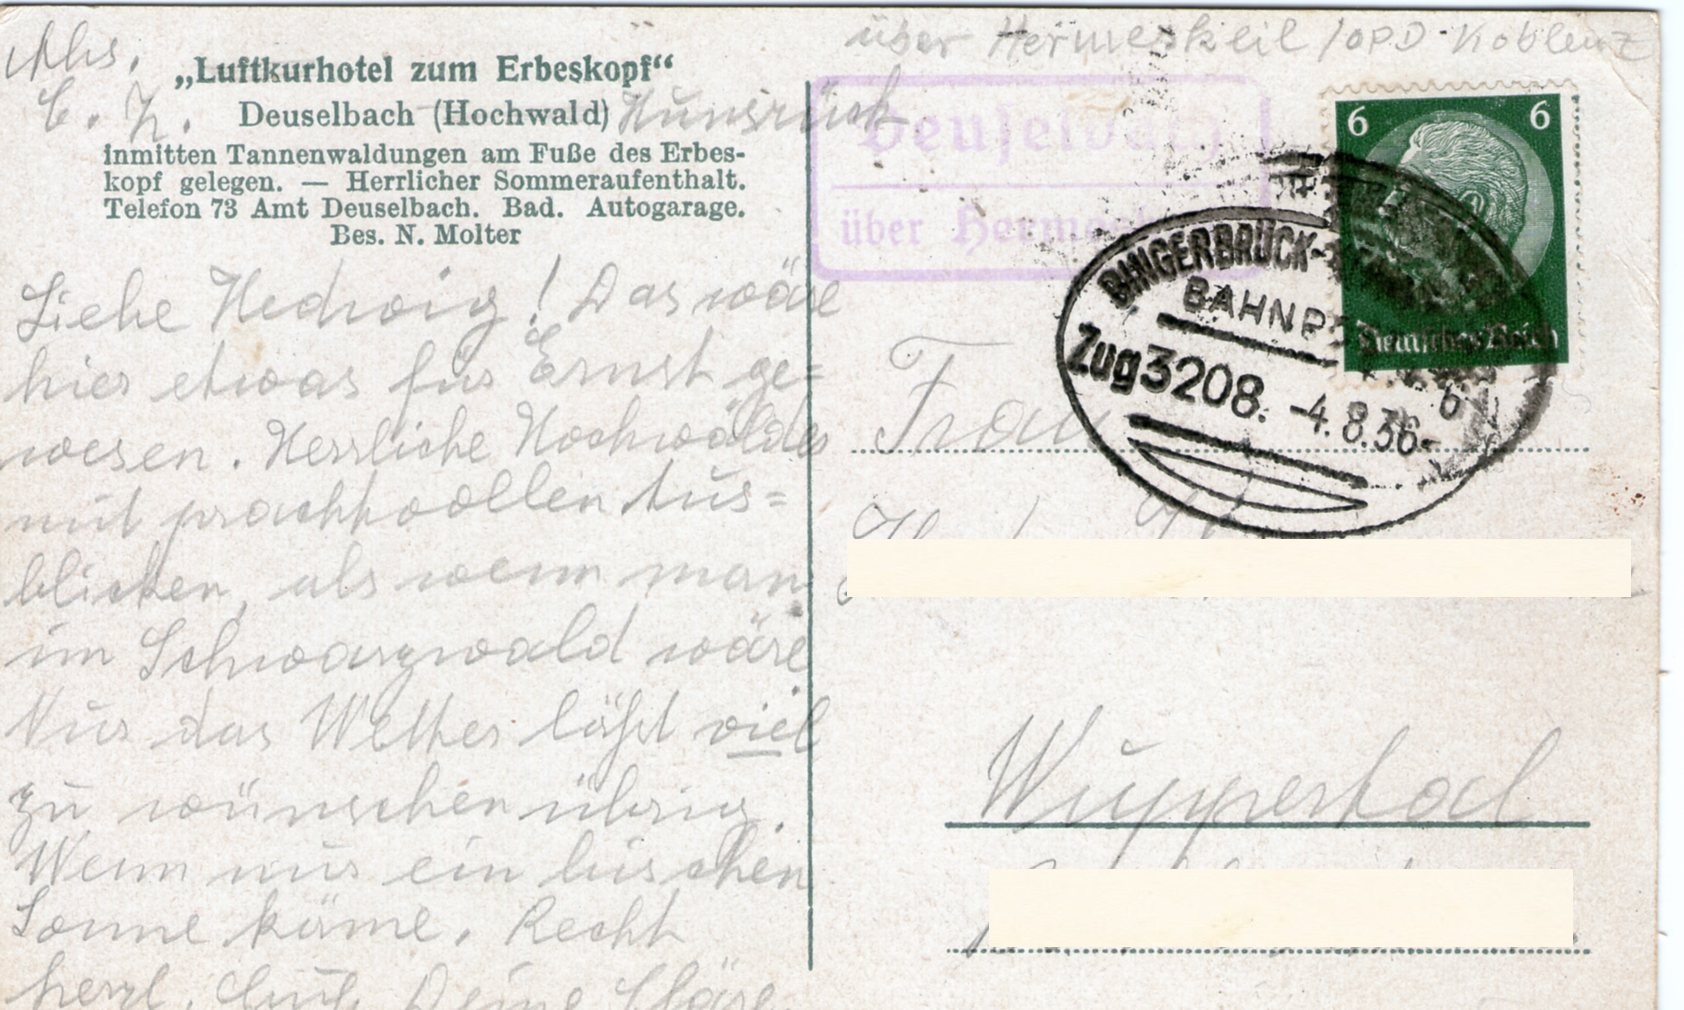 Abs.
über Hermeskeil / OPD Koblenz
„Luftkurhotel zum Erbeskopf“
z. Z.
Deuselbach (Hochwald) Hunsrück
inmitten Tannenwaldungen am Fuße des Erbes-
kopf gelegen. — Herrlicher Sommeraufenthalt.
Telefon 73 Amt Deuselbach. Bad. Autogarage.
Bes. N. Molter
Liebe Hedwig! Das wäre
hier etwas für Ernst ge=
wesen. Herrliche Hochwälder
mit prachtvollen Aus=
blicken, als wenn man
im Schwarzwald wäre
Nur das Wetter läßt viel
zu wünschen übrig.
Wenn nur ein bischen
Sonne käme. Recht
herzl. Deine
Deuselbach
über
6 6
Deutsches Reich
BINGERBRÜCK-
BAHNP
Zug 3208. -4.8.36-
b
Frau
Wuppertal